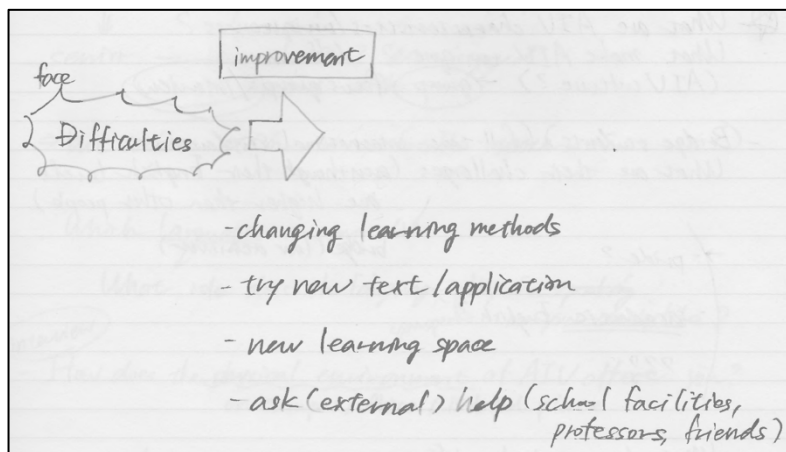 improvement
face
Difficulties
- changing learning methods
- try new text/application
- new learning space
- ask (external) help (school facilities,
professors, friends)